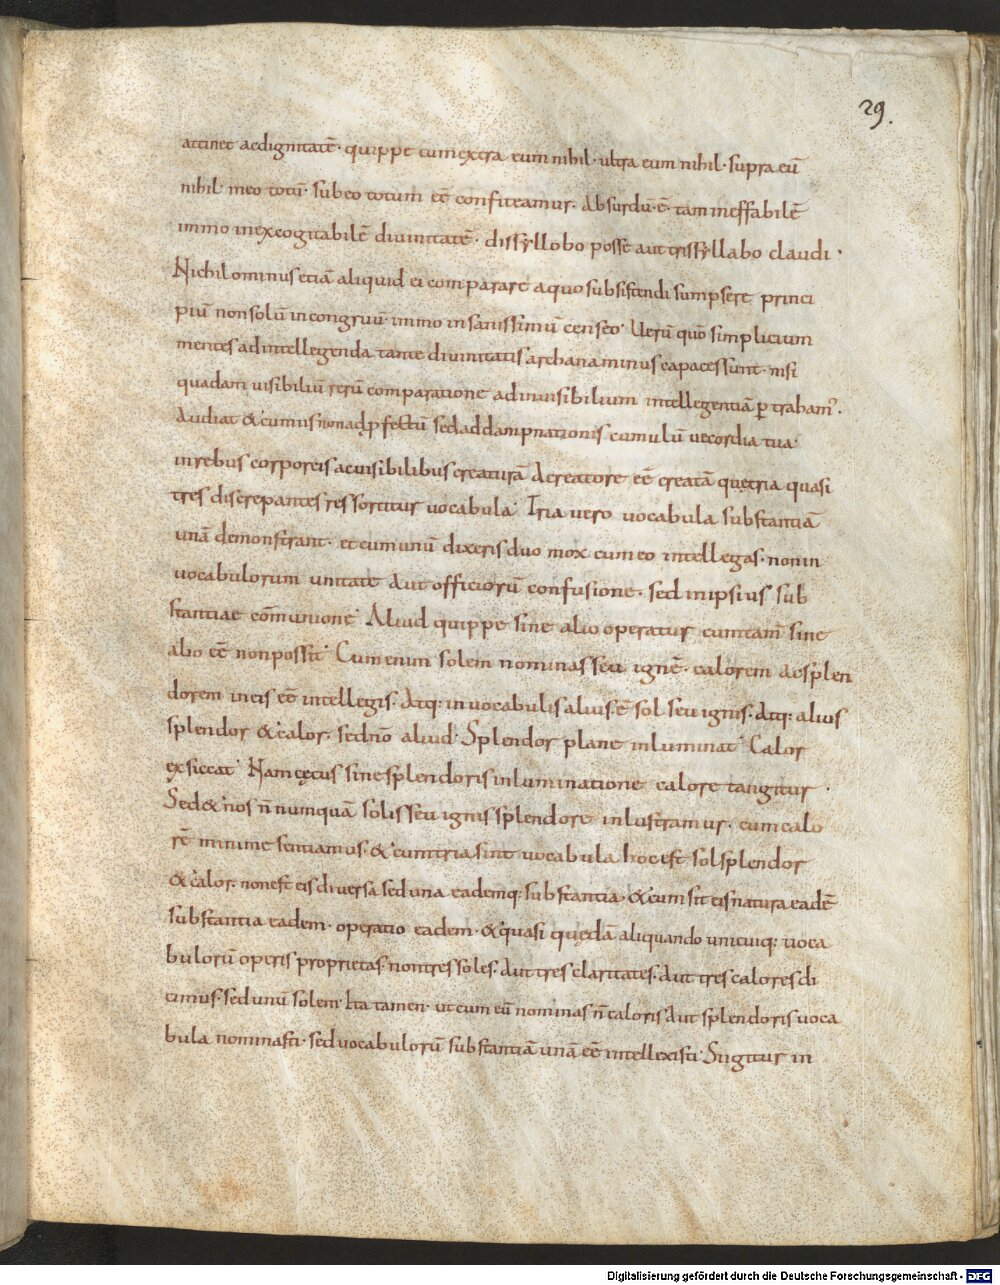 29.
attinet aedignitatē· quippe cum extra eum nihil· ultra eum nihil· supra eū
nihil· in eo totū· sub eo totum eē confiteamur· Absurdū·ē· tam ineffabilē
immo inexcogitabilē divinitatē· dissyllobo posse aut trissyllabo claudi·
Nichilominus etiā aliquid ei comparare a quo subsistendi sumpsere princi
piū non solū incongruū· immo insanissimū censeo· Uerū quō simplicium
mentes ad intellegenda tante divinitatis archana minus capaces sunt· nisi
quadam visibiliū rerū comparatione ad invisibilium intellegentiā ꝑtrahamꝰ·
Audiat & cum iis non ad ꝑfectū sed ad dampnationis cumulū vecordia tua·
in rebus corporeis ac visibilibus creaturā A creatore eē creatā quę tria quasi
tres discrepantes res sortitur vocabula· Tria vero vocabula substantiā
unā demonstrant· et cum unū dixeris duo mox cum eo intellegas· non in
vocabulorum unitate Aut officiorū confusione· sed in ipsius sub
stantiae cōmunione· Aliud quippe sine alio operatur cum tam̄ sine
alio eē non possit· Cum enim solem nominas seu ignē· calorem ac splen
dorem in eis eē intellegis· Atq: in vocabulis alius·ē· sol seu ignis· Atq: alius
splendor & calor· sed nō aliud· Splendor plane inluminat· Calor
exsiccat· Nam cęcus sine splendoris inluminatione calore tangitur·
Sed & nos n̄ numquā solis seu ignis splendore inlustramur· cum calo
rē minime sentiamus· & cum tria sint vocabula hoc est sol splendor
& calor· non est eis diversa sed una eademq: substantia· & cum sit eis natura eadē
substantia eadem· operatio eadem· & quasi quędā aliquando unicuiq: uoca
bulorū operis proprietas· non tres soles· Aut tres claritates· Aut tres calores di
cimus· sed unū solem· Ita tamen· ut cum eū nominas n̄ caloris Aut splendoris uoca
bula nominasti· sed vocabulorū substantiā unā eē intellexisti· Si igitur in
Digitalisierung gefördert durch die Deutsche Forschungsgemeinschaft - DFG